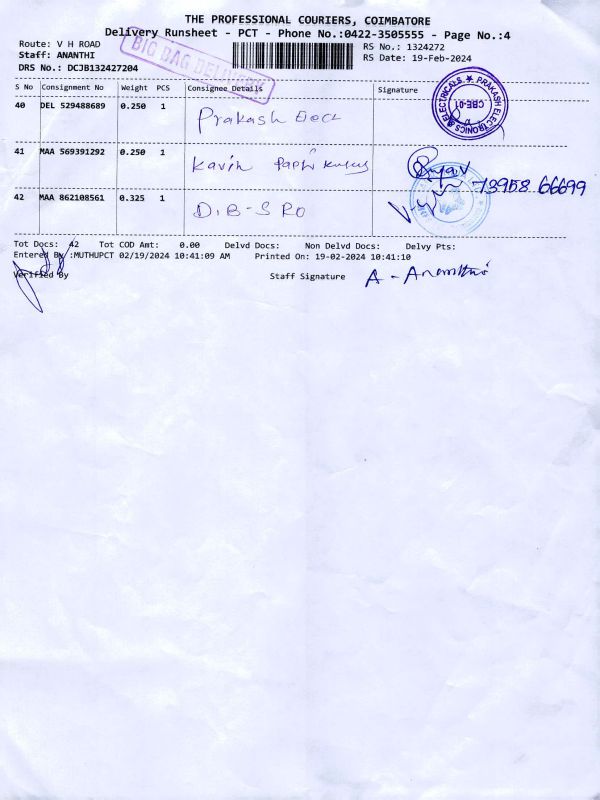 THE PROFESSIONAL COURIERS, COIMBATORE
Delivery Runsheet - PCT - Phone No.:0422-3505555 - Page No.:4
Route: V H ROAD
RS No.: 1324272
Staff: ANANTHI
RS Date: 19-Feb-2024
DRS No.: DCJB132427204
BIG BAG DELIVERY
S No Consignment No Weight PCS Consignee Details Signature
40 DEL 529488689 0.250 1 Prakash Elect
PRAKASH ELECTRONICS & ELECTRICALS ★
CBE-01
41 MAA 569391292 0.250 1 Kavin
73958 66699
42 MAA 862108561 0.325 1 D.B-S RO
Tot Docs: 42 Tot COD Amt: 0.00 Delvd Docs: Non Delvd Docs: Delvy Pts:
Entered By :MUTHUPCT 02/19/2024 10:41:09 AM Printed On: 19-02-2024 10:41:10
Verified By Staff Signature A - Ananthi